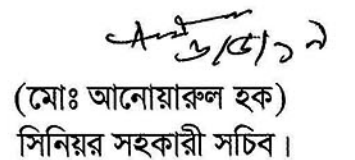 ৬/৫/১৯
(মোঃ আনোয়ারুল হক)
সিনিয়র সহকারী সচিব।